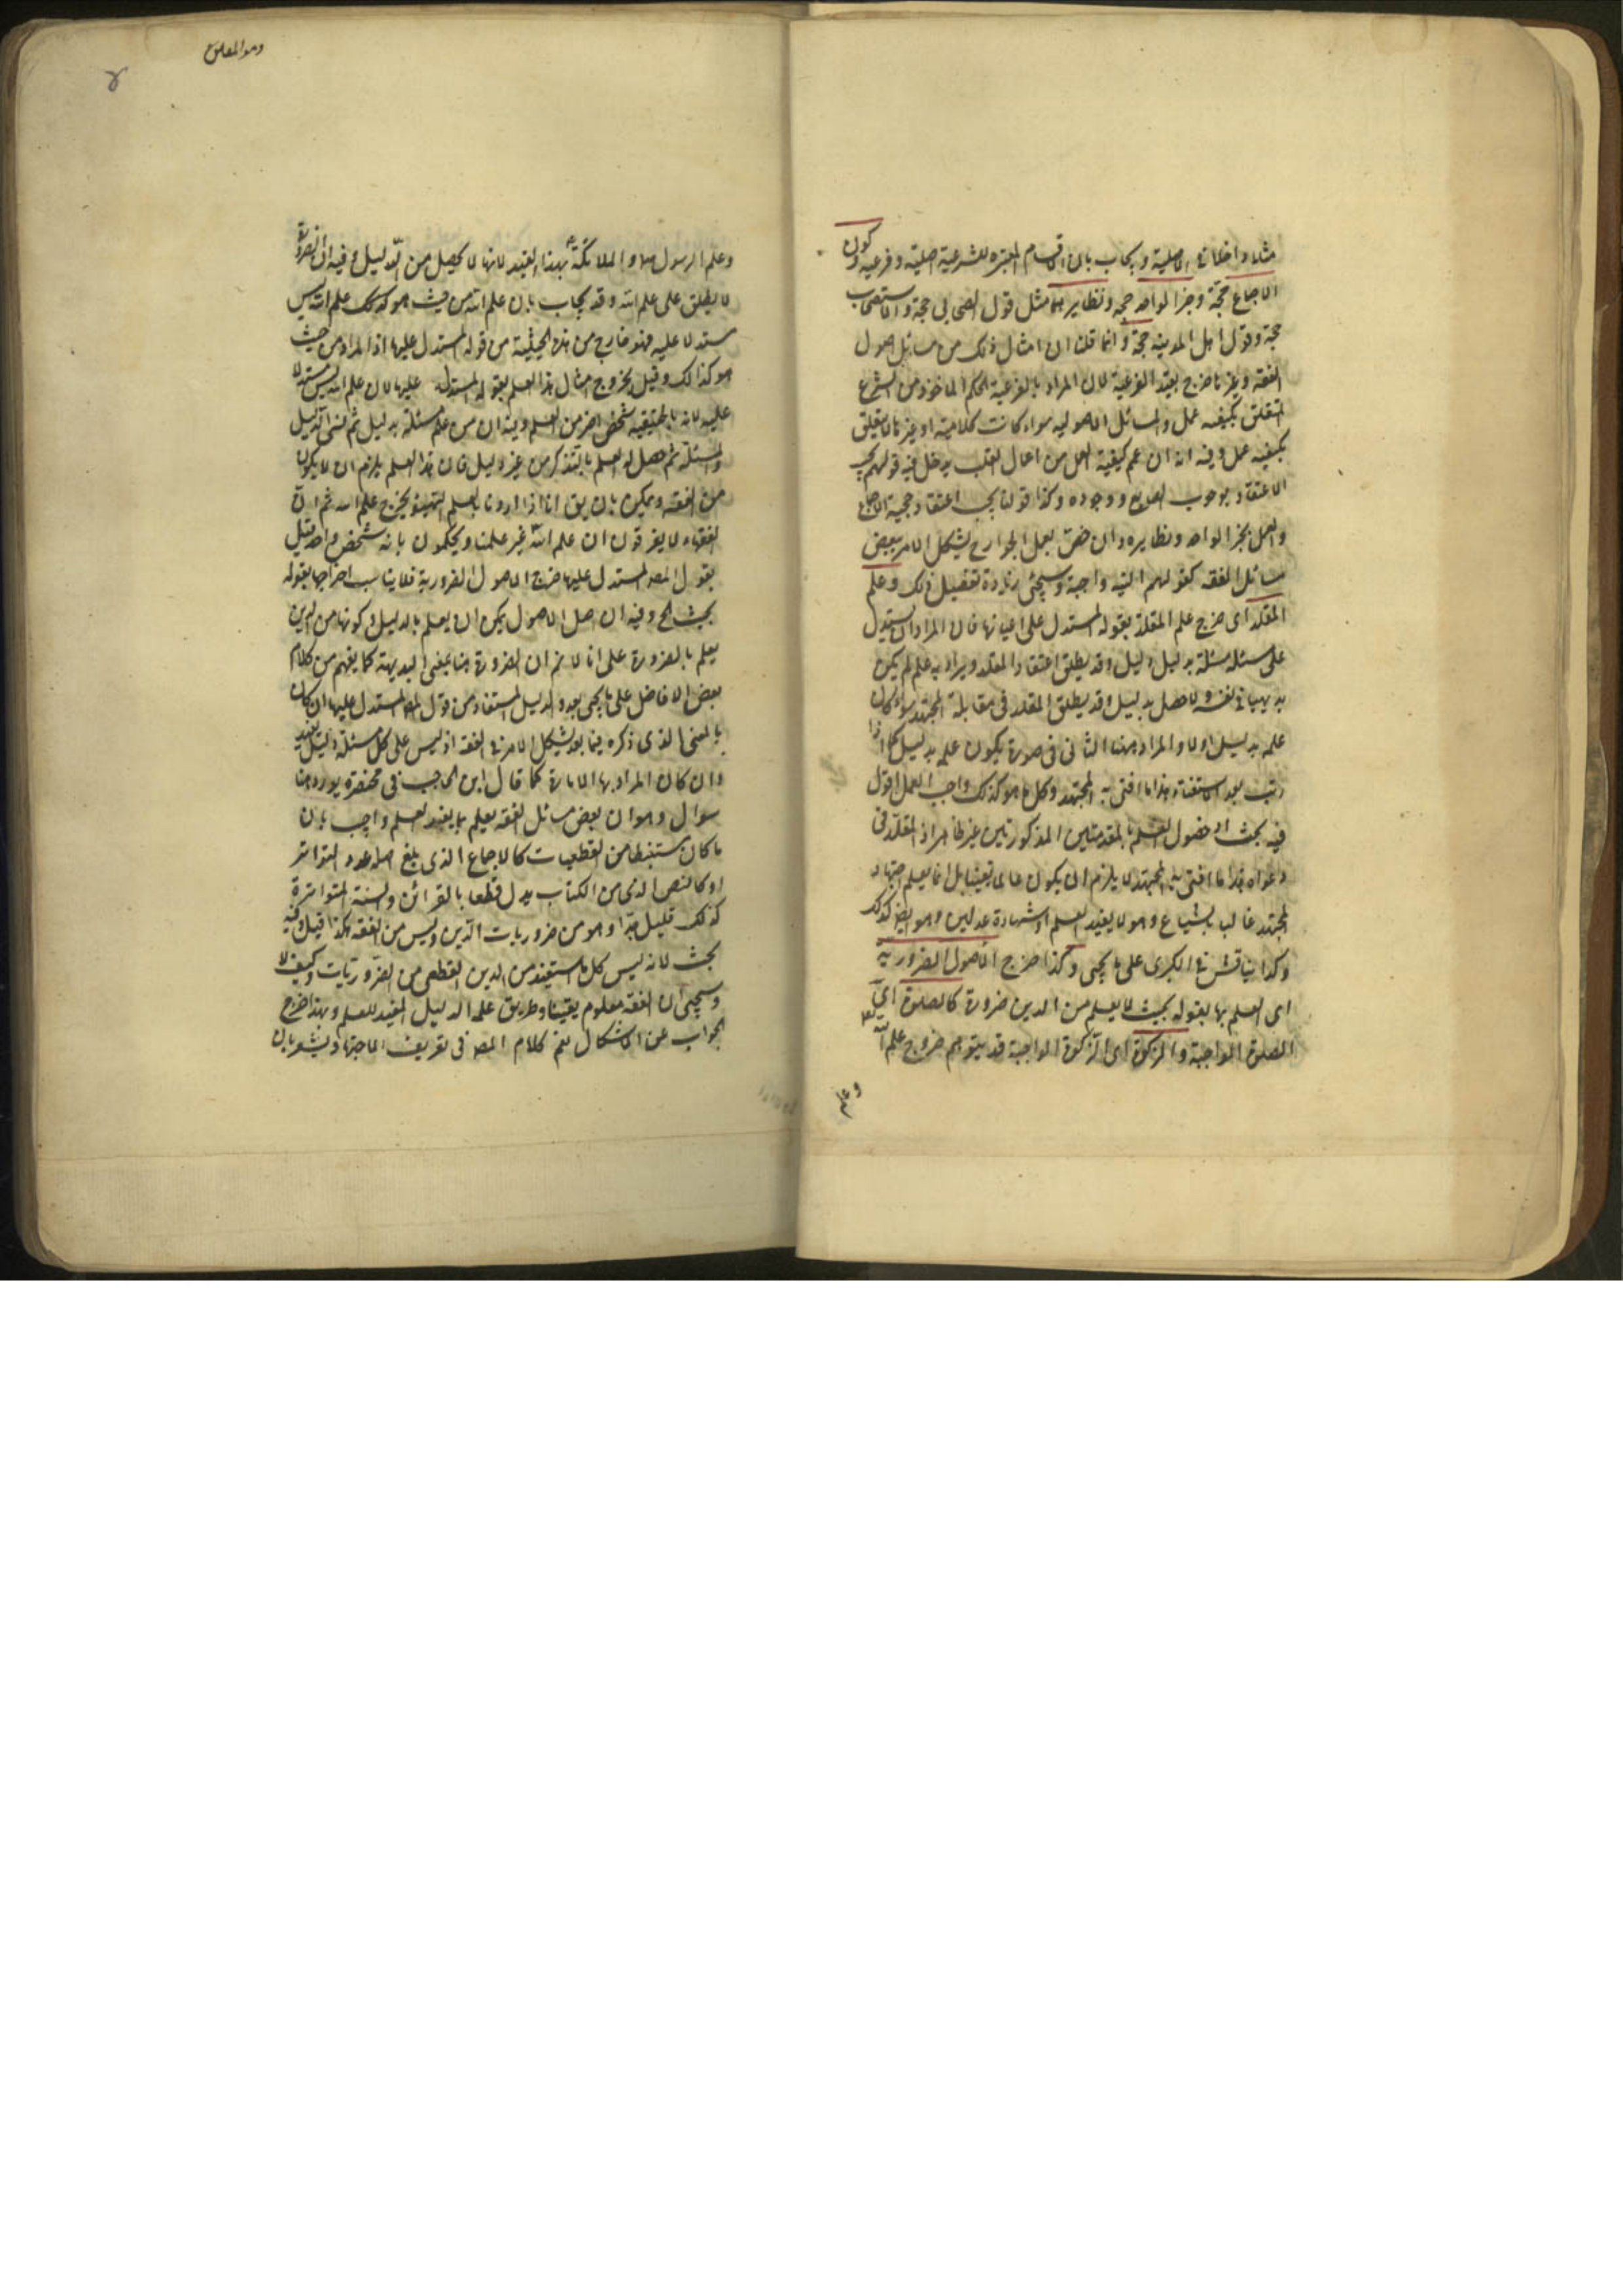 مثلا داخلة في الاصلية ويجاب بان الاقسام المعتبرة للشرعية اصلية وفرعية وكون
الاجماع حجة وخبر الواحد حجة ونظايرهما مثل قول الصحابي حجة والاستصحاب
حجة وقول اهل المدينة حجة وانما قلت ان امثال ذلك من مسائل اصول
الفقه وغيرها خرج بقيد الفرعية لان المراد بالفرعية الحكم الماخوذ من الشرع
المتعلق بكيفية عمل والمسائل الاصولية سواء كانت كلامية او غيرها لا يتعلق
بكيفية عمل وفيه انه ان عم كيفية العمل من اعمال القلب يدخل فيه قولهم يجب
الاعتقاد بوجوب الصانع ووجوده وكذا قولنا يجب اعتقاد حجية الاجماع
والعمل بخبر الواحد ونظايره وان خص بعمل الجوارح يشكل الامر ببعض
مسائل الفقه كقولهم النية واجبة وسيجئ زيادة تفصيل ذلك وعلم
المقلد اى خرج علم المقلد بقوله المستدل على اعيانها فان المراد ان يستدل
على مسئلة مسئلة بدليل دليل وقد يطلق اعتقاد المقلد ويراد به علم لم يكن
بديهيا في نفسه ولا حصل بدليل وقد يطلق المقلد في مقابلة المجتهد سواء كان
علمه بدليل اولا والمراد ههنا الثانى فى صورة يكون علمه بدليل كما اذا
رتب بعد الاستفتاء هذا ما افتى به المجتهد وكل ما هو كذلك واجب العمل اقول
فيه بحث اذ حصول العلم بالمقدمتين المذكورتين غير ظاهر اذ المقلد فى
دعواه هذا ما افتى به المجتهد لا يلزم ان يكون عالما يقينيا بل انما يعلم اجتهاد
المجتهد غالبا بالشياع وهو لا يفيد العلم او شهادة عدلين وهو ايضا كذلك
وكذا يناقش في الكبرى على ما يجئ وكذا خرج الاصول الضرورية
اى العلم بها بقوله بحيث لا يعلم من الدين ضرورة كالصلوة اى
الصلوة الواجبة والزكوة اى الزكوة الواجبة قد يتوهم خروج علم الله
وعلم
وهو المعلق
وعلم الرسول ص والملائكة بهذا القيد لانها لا يحصل من الدليل وفيه ان الضرورة
لا يطلق على علم الله وقد يجاب بان علم الله من حيث هو كذلك علم الله ليس
مستدلا عليه فهو خارج من هذه الحيثية من قوله المستدل عليها اذ المراد من حيث
هو كذالك وقيل بخروج امثال هذا العلم بقوله المستدل عليها لان علم الله ليس مستدلا
عليه لانه بالحقيقة شخص اخر من العلم وفيه ان من علم مسئلة بدليل ثم نسى الدليل
والمسئلة ثم حصل له العلم بالتذكر من غير دليل فان هذا العلم يلزم ان لا يكون
من الفقه ويمكن بان يق انا اذا اردنا بالعلم التهيئو يخرج علم الله ثم ان
الفقهاء لا يفرقون ان علم الله غير علمنا ويحكمون بانه شخص واحد قيل
بقول المصـ المستدل عليها خرج الاصول الضرورية فلا يناسب اخراجها بقوله
بحيث الخ وفيه ان اصل الاصول يمكن ان يعلم بالدليل وكونها من الدين
يعلم بالضرورة على انا لا نم ان الضرورة هنا بمعنى البديهة كما يفهم من كلام
بعض الافاضل على ما يجئ بعد والدليل المستفاد من قوله المستدل عليها ان كان
بالمعنى الذى ذكره فيما بعد يشكل الامر في الفقه اذ ليس على كل مسئلة دليل
وان كان المراد بها الامارة كما قال ابن الحاجب فى مختصره يورد هنا
سوال وهو ان بعض مسائل الفقه يعلم بما يفيد العلم واجيب بان
ما كان مستنبطا من القطعيات كالاجماع الذى بلغ اهله عدد التواتر
او كالنص الذى من الكتاب يدل قطعا بالقرائن والسنة المتواترة
كذلك قليل جدا وهو من ضروريات الدين وليس من الفقه هكذا قيل وفيه
بحث لانه ليس كل ما استفيد من الدين القطعى من الضروريات وكيف لا
وسيجئ ان الفقه معلوم يقينا وطريق علمه الدليل المفيد للعلم وبهذا خرج
الجواب عن الاشكال نعم كلام المصـ فى تعريف الاجتهاد يشعر بان